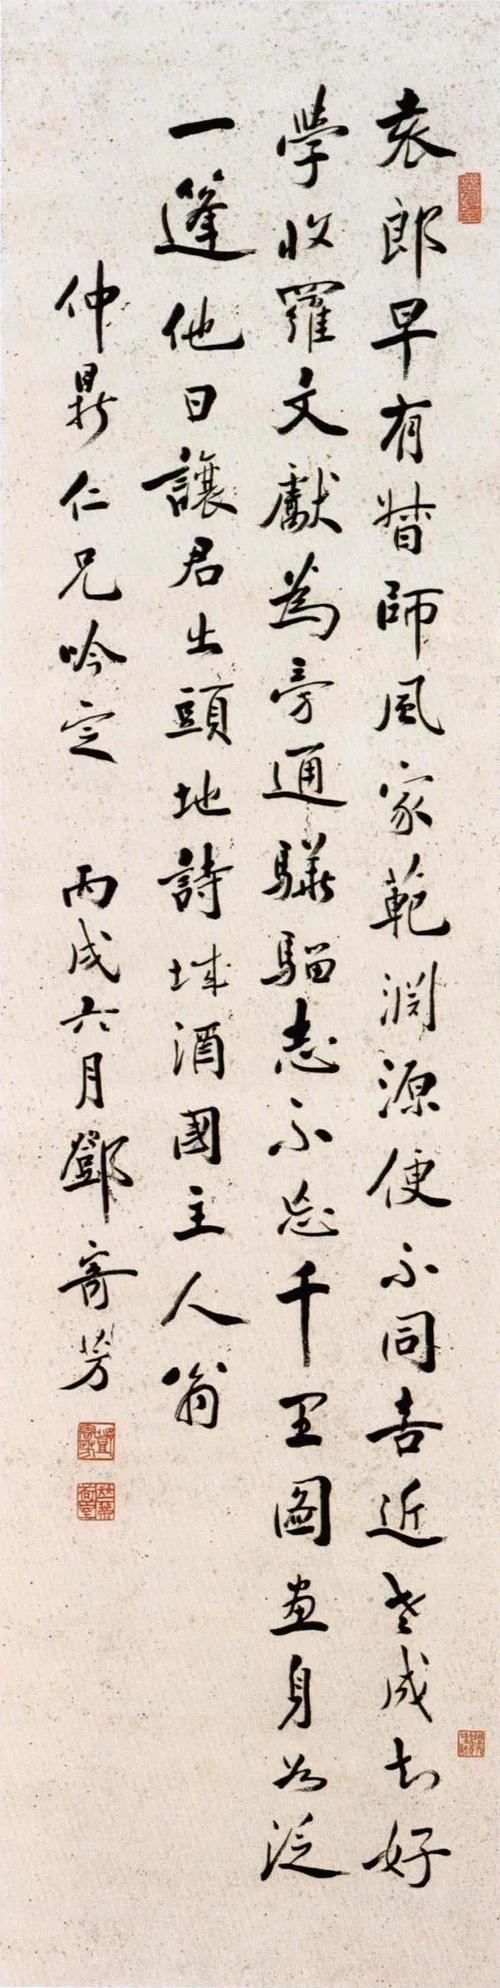 袁郎早有督師風家範淵源便不同喜近老成知好
學收羅文獻為旁通驊騮志不忘千里圖畫身如泛
一篷他日讓君出頭地詩城酒國主人翁
仲鼎仁兄吟定 丙戌六月鄧寄芳